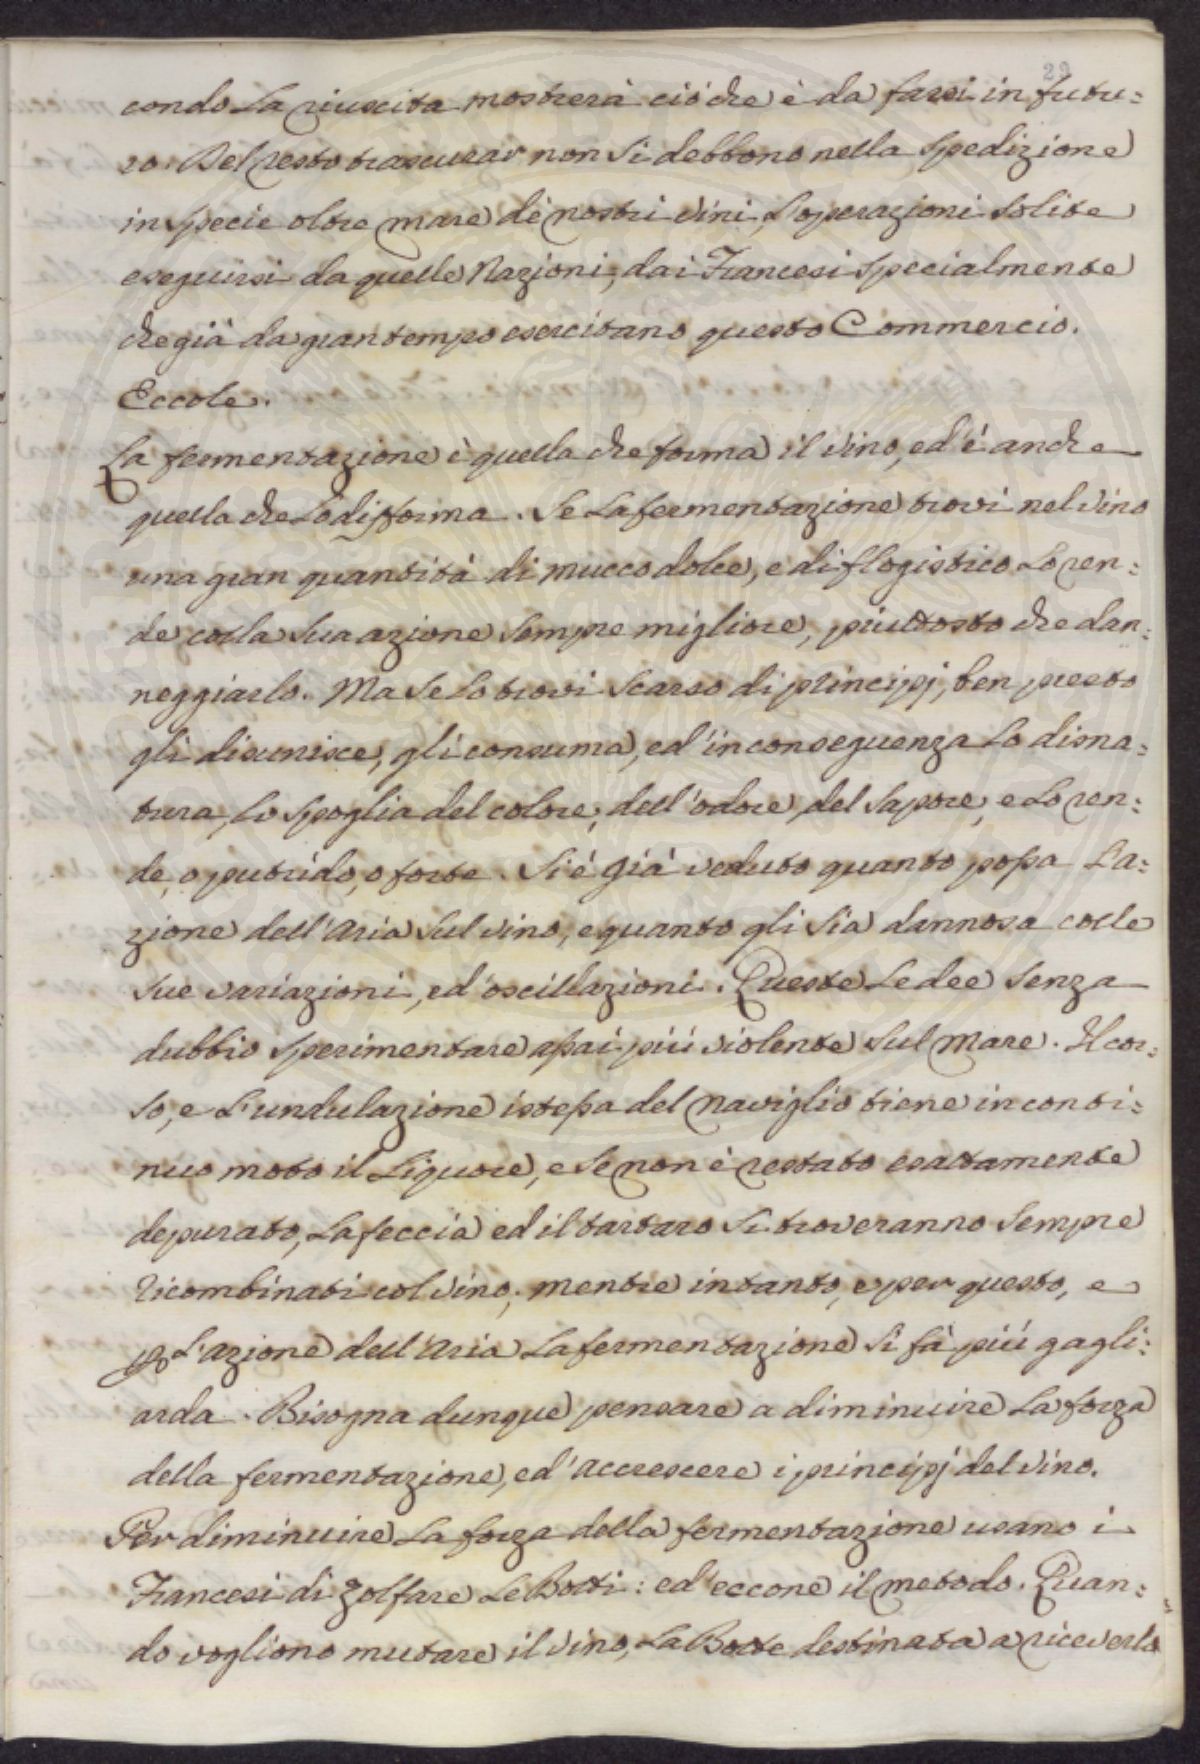 29
condo la riuscita mostrerà ciò che è da farsi in futu:
ro. Del resto trascurar non si debbono nella spedizione
in specie oltre mare de' nostri vini, l'operazioni solite
eseguirsi da quelle Nazioni, dai Francesi specialmente
che già da gran tempo esercitano questo Commercio.
Eccole.
La fermentazione è quella che forma il vino, ed è anche
quella che lo difforma. Se la fermentazione trovi nel vino
una gran quantità di mucco dolce, e di flogistico lo ren:
de colla sua azione sempre migliore, piuttosto che dan:
neggiarlo. Ma se lo trovi scarso di principj, ben presto
gli disunisce, gli consuma, ed in conseguenza lo disna:
tura, lo spoglia del colore, dell'odore, del sapore, e lo ren:
de, o putrido, o forte. Si è già veduto quanto possa l'a:
zione dell'aria sul vino, e quanto gli sia dannosa colle
sue variazioni, ed oscillazioni. Queste le dee senza
dubbio sperimentare assai più violente sul mare. Il cor:
so, e l'undulazione istessa del naviglio tiene in conti:
nuo moto il liquore, e se non è restato esattamente
depurato, la feccia ed il tartaro si troveranno sempre
ricombinati col vino; mentre intanto, e per questo, e
p l'azione dell'aria la fermentazione si fà più gagli:
arda. Bisogna dunque pensare a diminuire la forza
della fermentazione, ed accrescere i principj del vino.
Per diminuire la forza della fermentazione usano i
Francesi di zolfare le Botti: ed eccone il metodo. Quan:
do vogliono mutare il vino, la Botte destinata a riceverlo